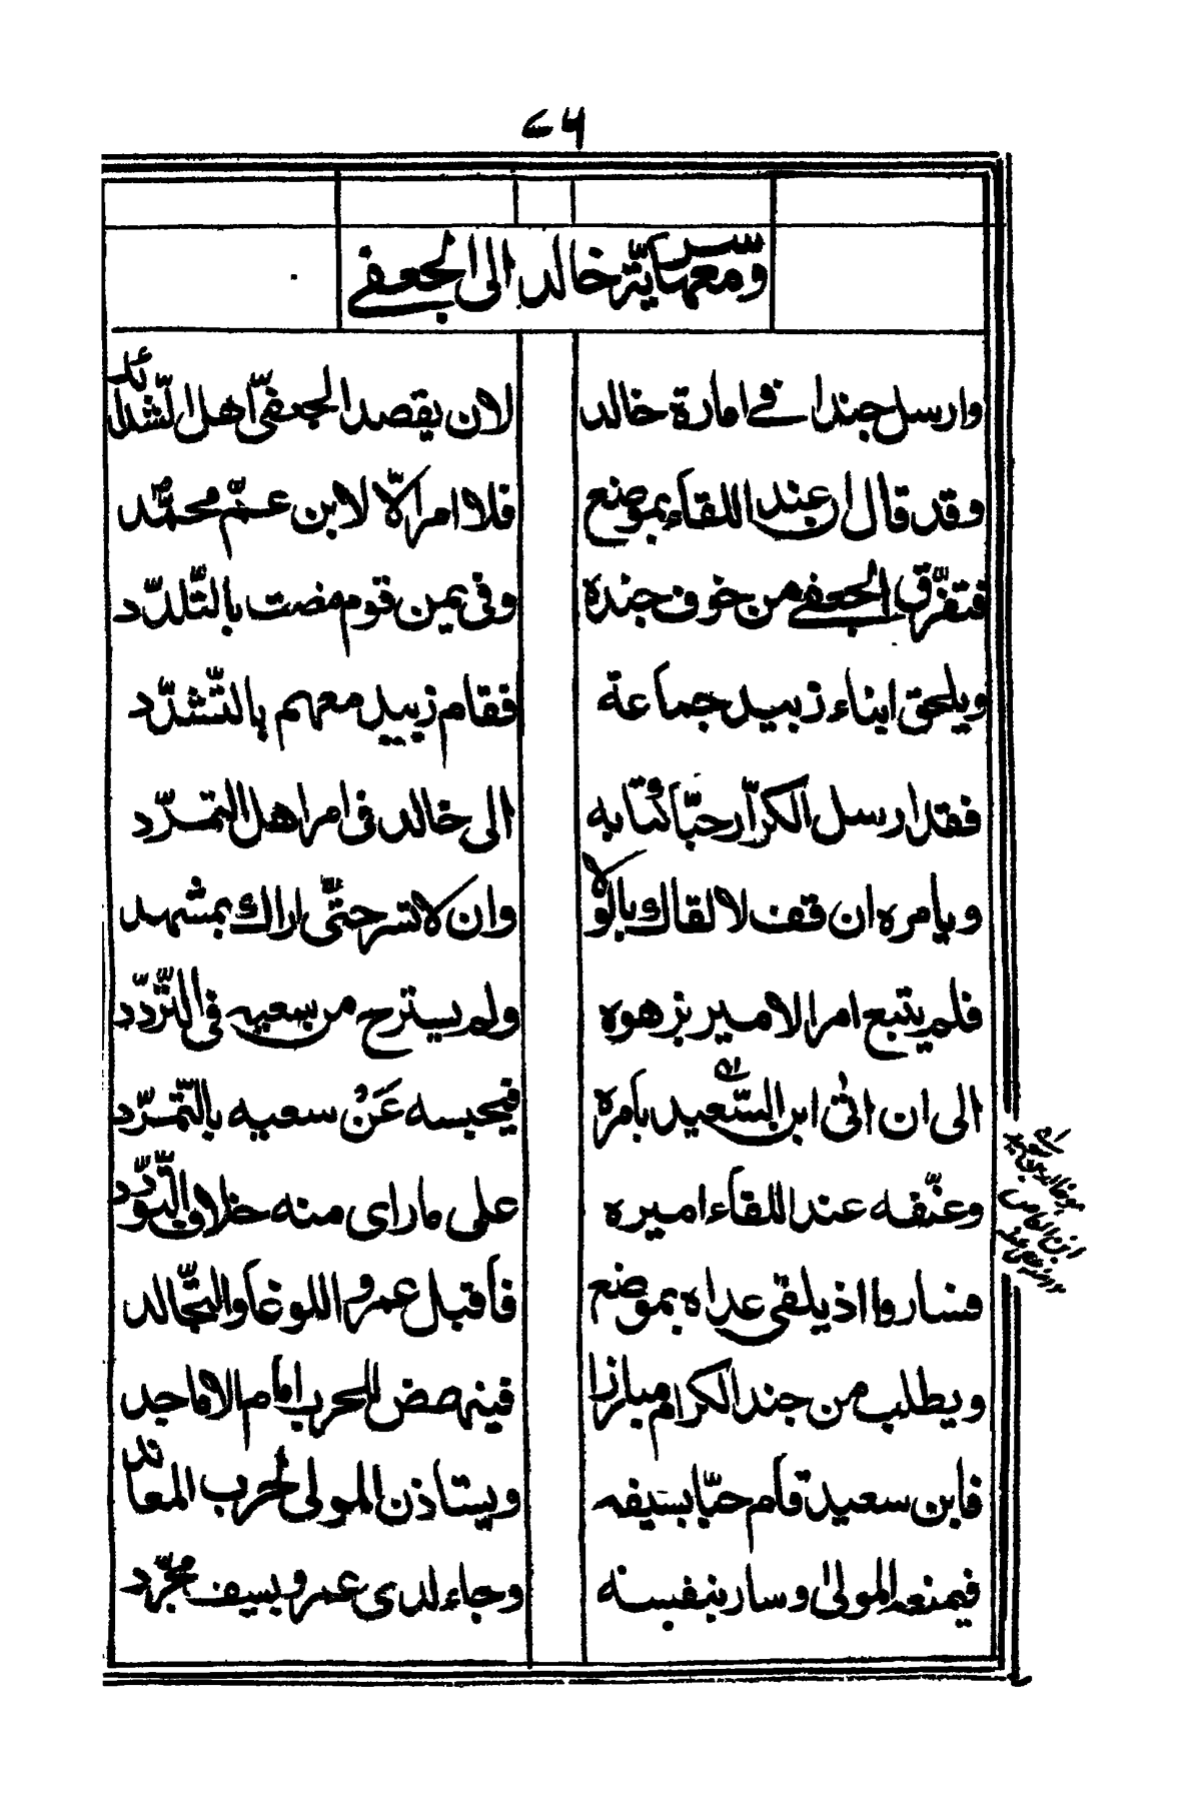 ومعها سرية خالد الى الجعفي
وارسل جندا في امارة خالد لان يقصد الجعفيّ اهل الشّدائد
وقد قال ان عند اللقاء بموضع فلا امرالّا لابن عمّ محمّد
فتفرّق الجعفي من خوف جنده وفى يمن قوم مضت بالتّلدّد
ويلحق ابناء زبيد جماعة فقام زبيد معهم بالتّشدّد
فقد ارسل الكرّار حبّا كتابه الى خالد فى امر اهل التمرّد
ويامره ان قف لالقاك بالولا وان لا تسر حتّى اراك بمشهد
فلم يتبع امر الامير بزهوه ولم يسترح من سعيه فى التّردّد
الى ان اتى ابن السّعيد بامره فيحبسه عَنْ سعيه بالتّمرّد
وعنّفه عند اللقاء اميره على ماراى منه خلاف التّودّد
فساروا اذ يلقى عداه بموضع فاقبل عمرو اللوغا والتّجالد
ويطلب من جند الكرام مبارزا فينهض للحرب امام الاماجد
فابن سعيد قام حبّا بسيفه ويستاذن المولى لحرب المعاند
فيمنعه المولى وسار بنفسه وجاء لدى عمرو بسيف مجرّد